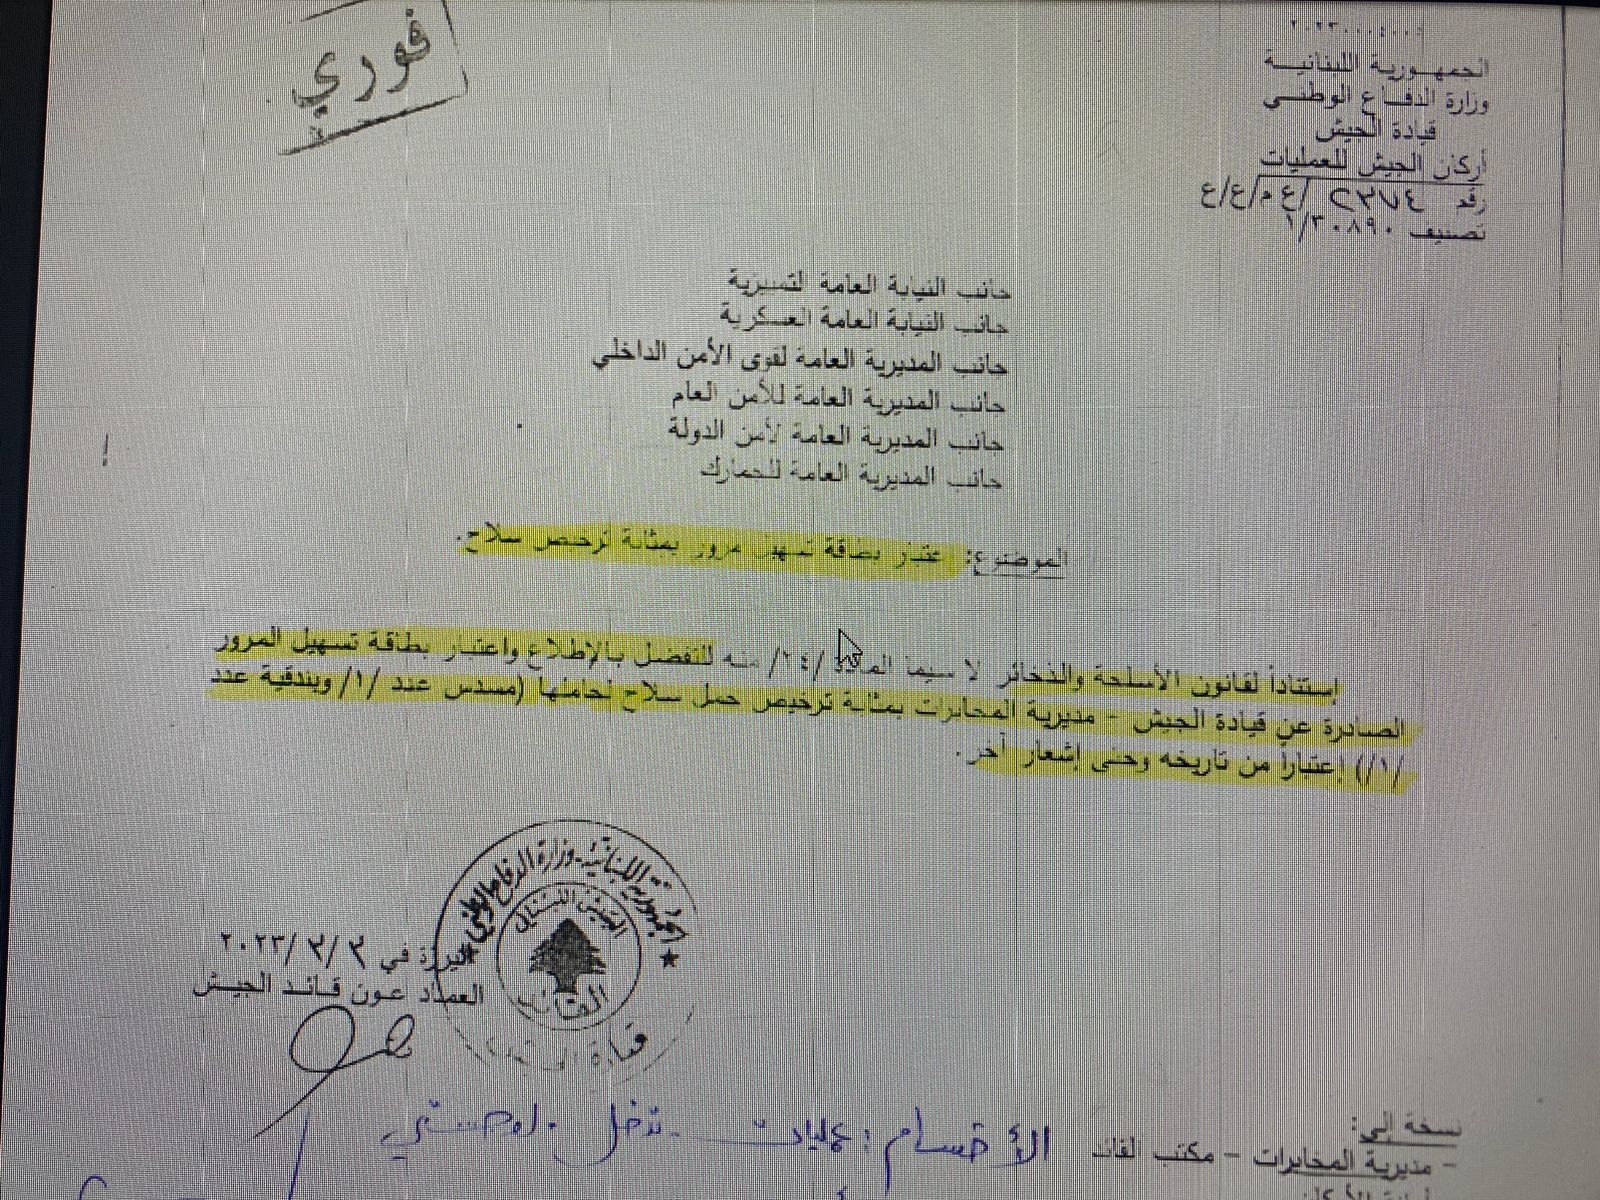 فوري
الجمهورية اللبنانية
وزارة الدفاع الوطني
قيادة الجيش
أركان الجيش للعمليات
رقم ٢٣٧٤ /ع م/ع/ع
تصنيف ١/٣٠٨٩٠
جانب النيابة العامة التمييزية
جانب النيابة العامة العسكرية
جانب المديرية العامة لقوى الأمن الداخلي
جانب المديرية العامة للأمن العام
جانب المديرية العامة لأمن الدولة
جانب المديرية العامة للجمارك
الموضوع: إعتبار بطاقة تسهيل مرور بمثابة ترخيص سلاح.
إستناداً لقانون الأسلحة والذخائر لا سيما المادة /٢٤/ منه للتفضل بالإطلاع واعتبار بطاقة تسهيل المرور
الصادرة عن قيادة الجيش - مديرية المخابرات بمثابة ترخيص حمل سلاح لحاملها (مسدس عدد /١/ وبندقية عدد
/١/) إعتباراً من تاريخه وحتى إشعار آخر.
الجمهورية اللبنانية - وزارة الدفاع الوطني
الجيش اللبناني
القائد
قيادة
اليرزة في ٣/٣/٢٠٢٣
العماد عون قائد الجيش
الأقسام : عمليات - تدخل -
نسخة إلى:
- مديرية المخابرات - مكتب القائد